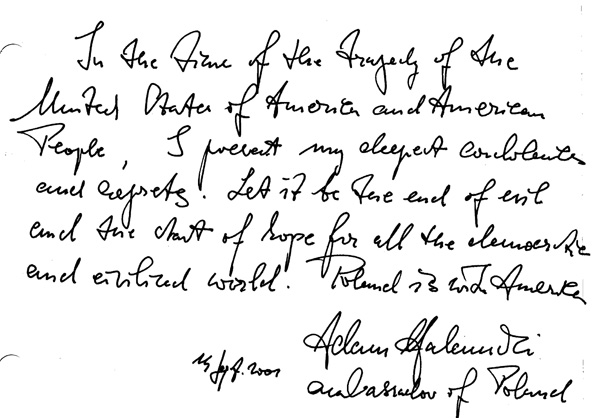 In the time of the tragedy of the
United States of America and American
People, I present my deepest condolences
and regrets. Let it be the end of evil
and the start of hope for all the democratic
and civilized world. Poland is with America
Adam
Sept. 2001
ambassador of Poland